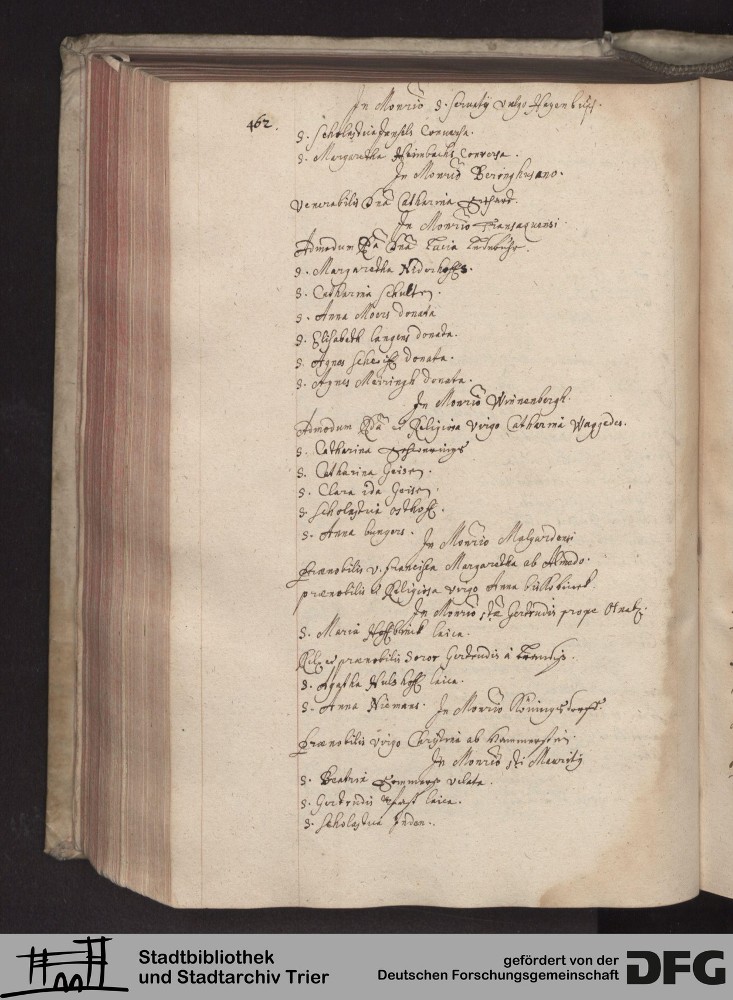 In Monrio S. Servatii vulgo
462.
S. Scholastica Conversa.
S. Margaretha Heimbachs Conversa.
In Monrio Beringhusano.
Venerabilis Dna Catharina
In Monrio
Admodum Rda Dna Lucia
S. Margaretha Niderhoffs.
S. Catharina Schulten.
S. Anna Moers donata
S. Elisabeth Langens donata.
S. Agnes donata.
S. Agnes Marringh donata.
In Monrio Winnenbergh.
Admodum Rda et Religiosa virgo Catharina
S. Catharina
S. Catharina Geisen.
S. Clara Ida Geisen.
S. Scholastica Osthoff.
S. Anna bungers.
In Monrio Malgardensi
Praenobilis V. Francisca Margaretha ab Almedo.
praenobilis et Religiosa virgo Anna
In Monrio stae Gertrudis prope Osnab.
S. Maria Hoffbrink laica.
Relig. et praenobilis Soror Gertrudis à
S. Agatha Hulshoff laica.
S. Anna Niemans.
In Monrio Köningsdorff.
Praenobilis virgo Christina ab Hammerstein.
In Monrio sti Mauritii
S. Beatrix Sommers velata.
S. Gertrudis laica.
S. Scholastica Inden.
Stadtbibliothek
und Stadtarchiv Trier
gefördert von der
Deutschen Forschungsgemeinschaft
DFG